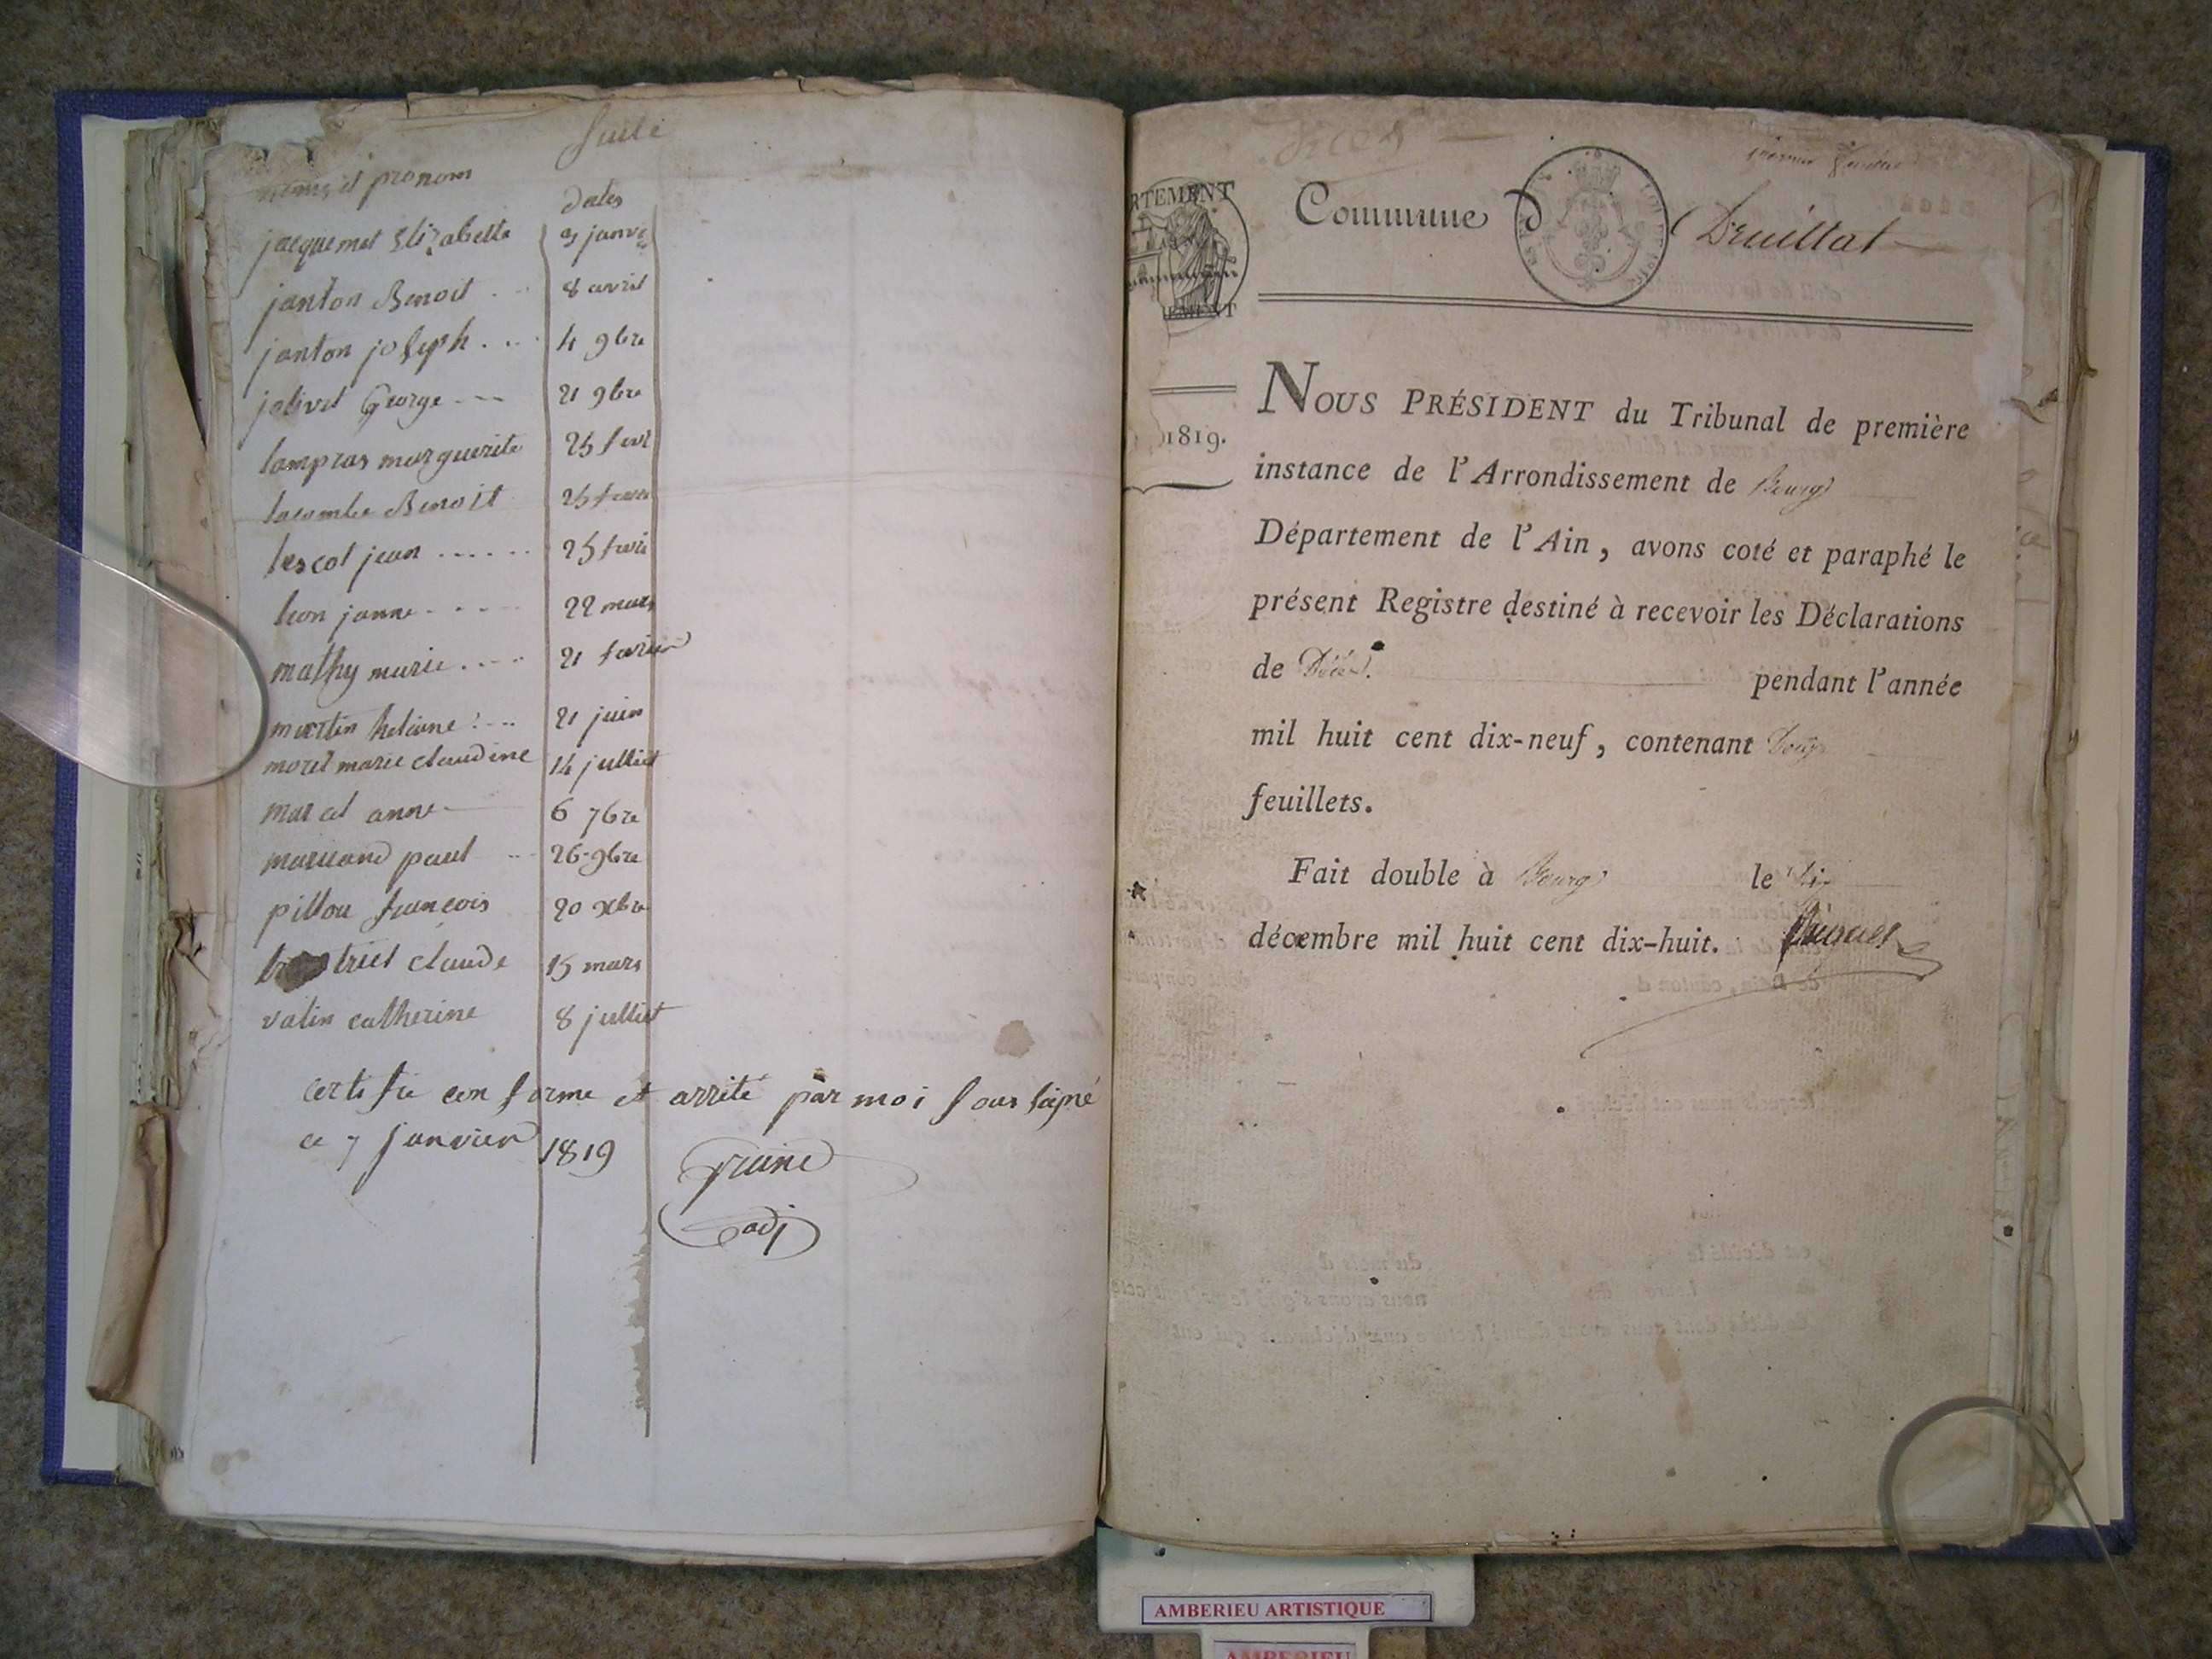 Suite
noms et pronom
dates
jacquemet Elizabette 3 janv
janton Benoit 8 avril
janton joseph 4 9bre
jolivet George 21 9bre
lampras marguerite 25 fevr
lacombe Benoit 25 fevr
lescot jean 25 fevr
leon janne 22 mars
mathy marie 21 fevrier
martin 21 juin
morel marie claudine 14 julliet
maral anne 6 7bre
marnand paul 26 9bre
pillou francois 20 xbre
triet claude 15 mars
valin catherine 8 julliet
certifie conforme et arrité par moi soussigné
ce 7 janvier 1819
adj
RTEMENT
1819.
Commune d Druillat
NOUS PRÉSIDENT du Tribunal de première
instance de l'Arrondissement de Bourg
Département de l'Ain, avons coté et paraphé le
présent Registre destiné à recevoir les Déclarations
de Décès. pendant l'année
mil huit cent dix-neuf, contenant
feuillets.
Fait double à Bourg le
décembre mil huit cent dix-huit.
AMBERIEU ARTISTIQUE
AMBERIEU